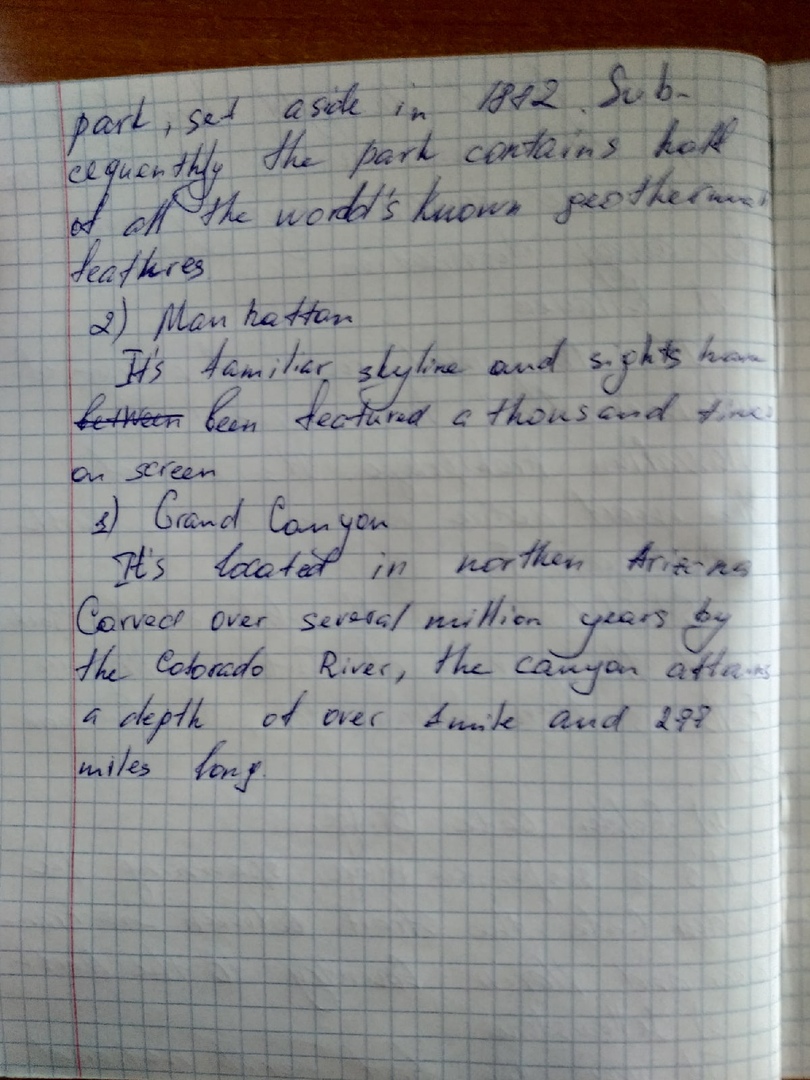 park, set aside in 1872. Sub-
cequenthly the park contains half
of all the world's known geothermal
features
2) Manhattan
It's familiar skyline and sights have
between been featured a thousand times
on screen
3) Grand Canyon
It's located in northen Arizona
Carved over several million years by
the Colorado River, the canyon attains
a depth of over 1 mile and 277
miles long.